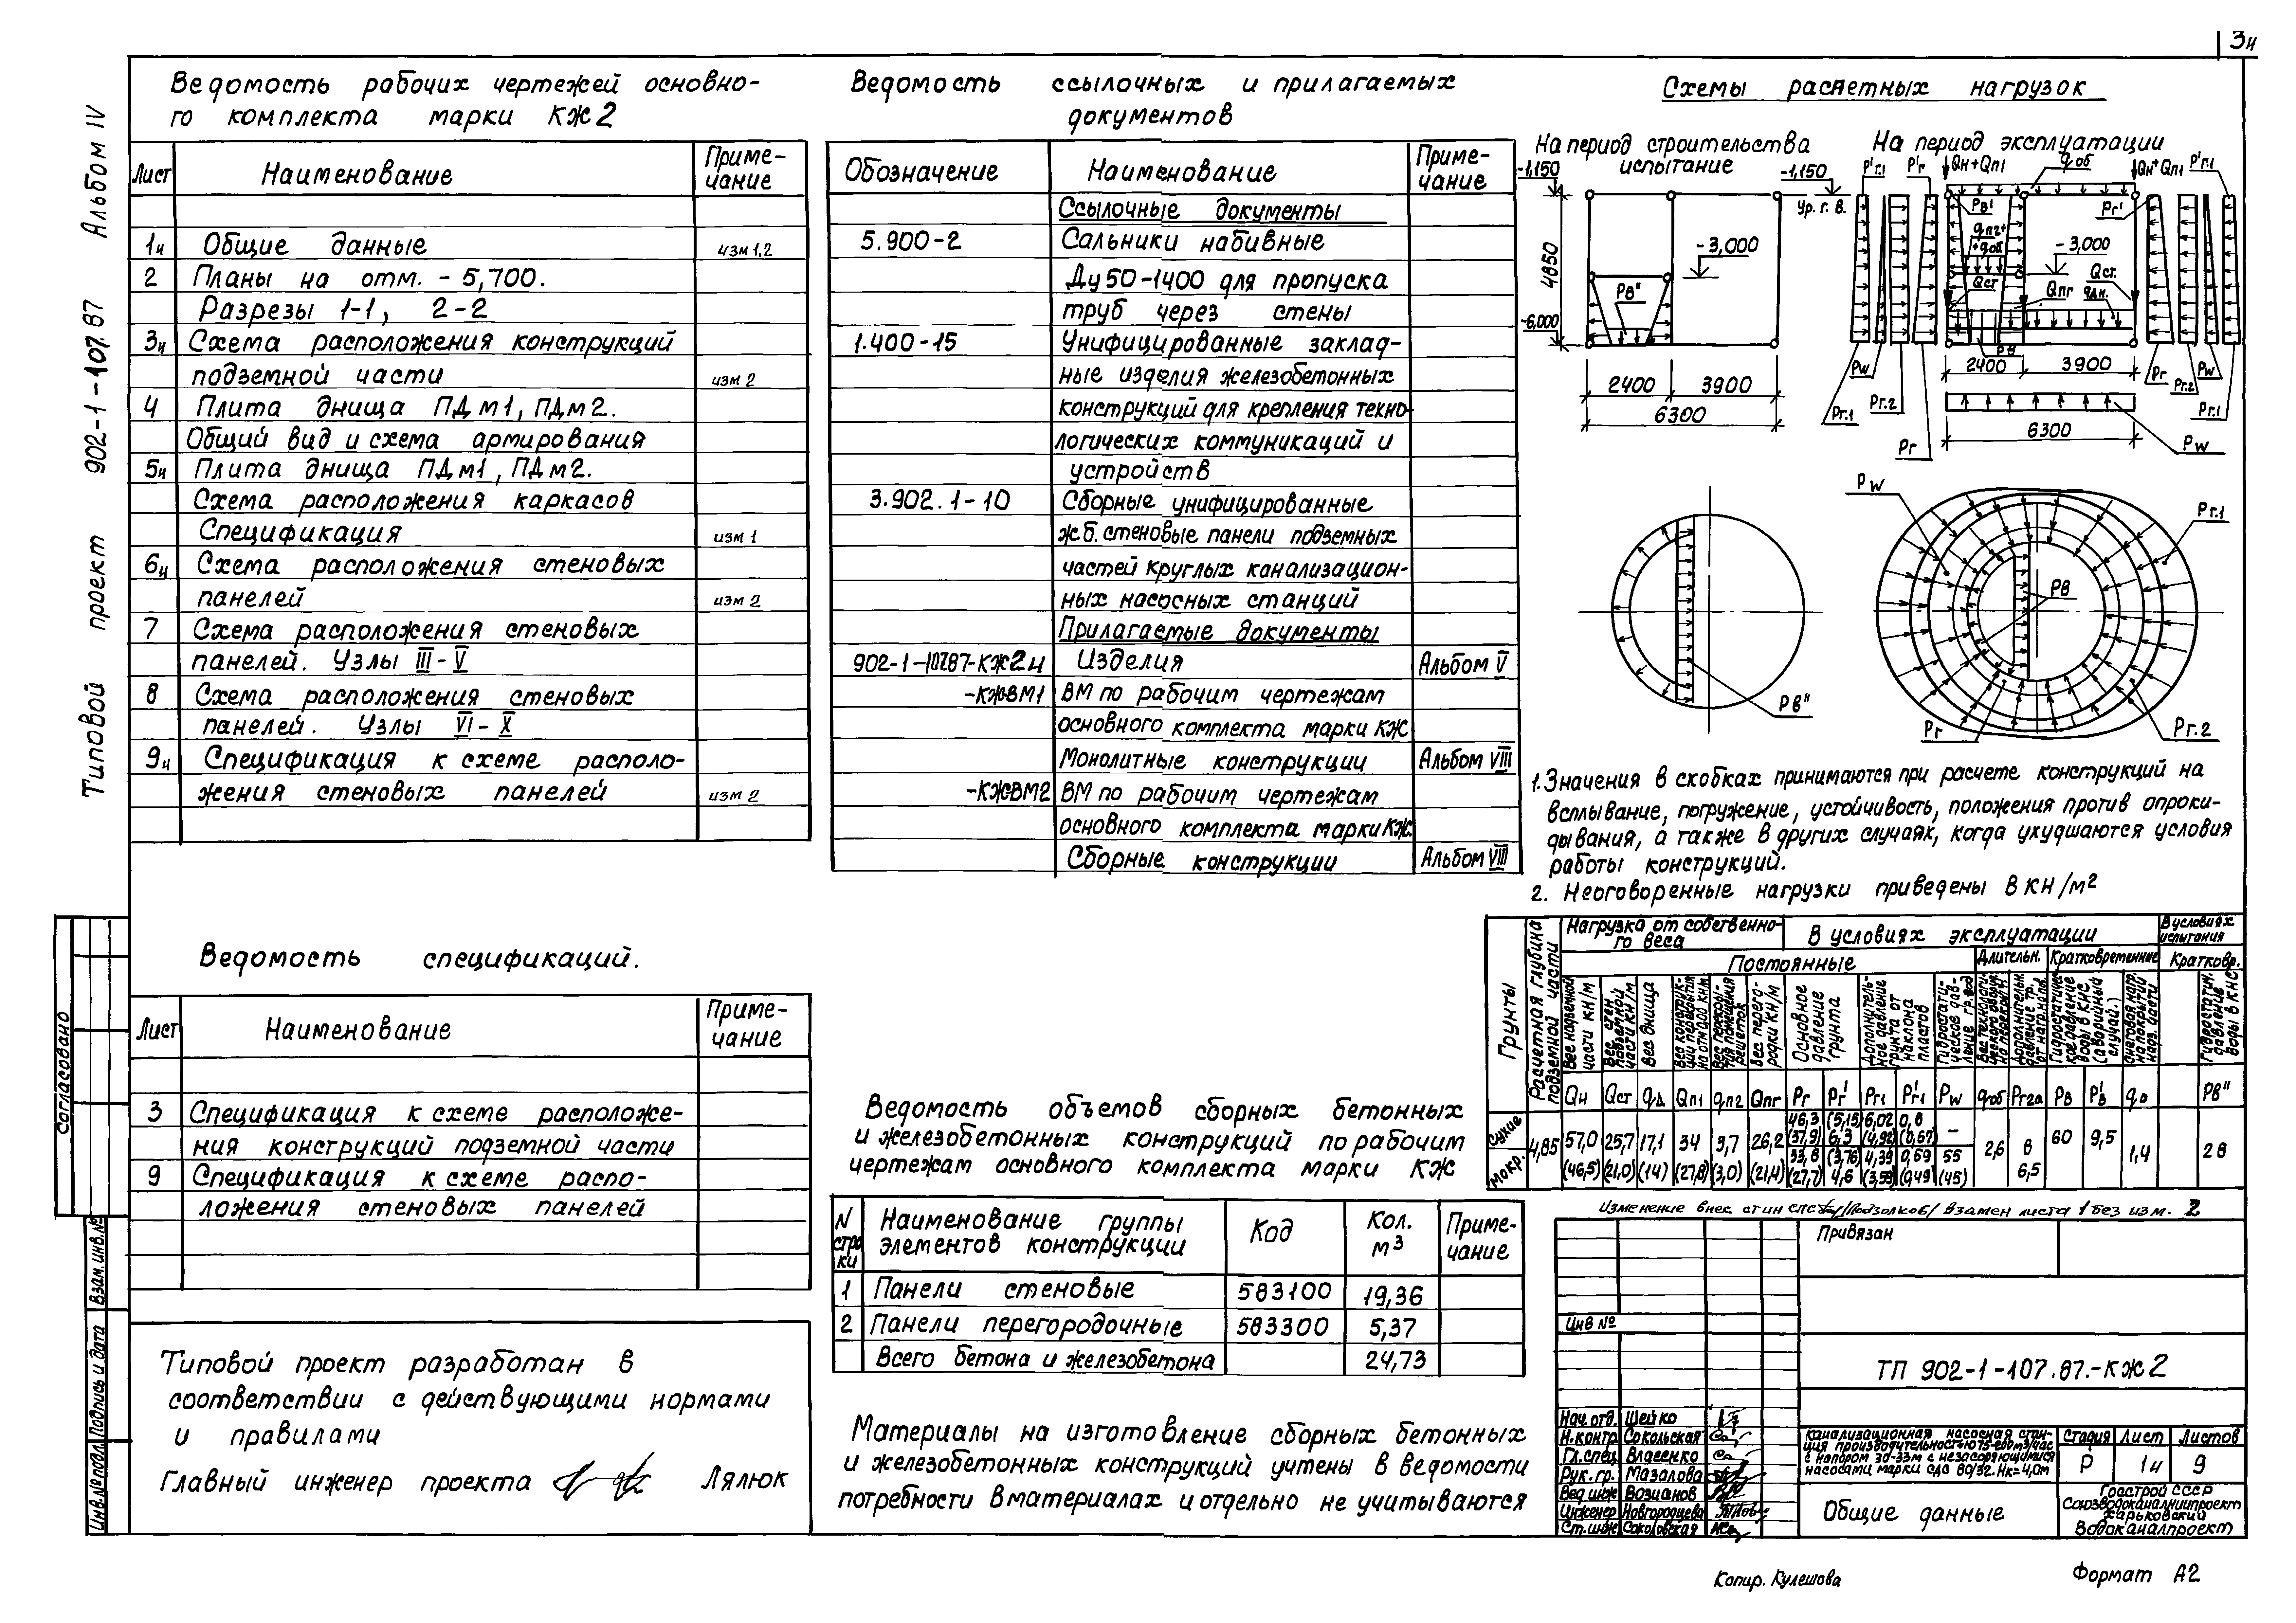 3и
Типовой проект 902-1-107.87 Альбом IV
Ведомость рабочих чертежей основно-
го комплекта марки КЖ2
Лист Наименование Приме-
чание
1и Общие данные изм 1,2
2 Планы на отм. -5,700.
Разрезы 1-1, 2-2
3и Схема расположения конструкций
подземной части изм 2
4 Плита днища ПДм1, ПДм2.
Общий вид и схема армирования
5и Плита днища ПДм1, ПДм2.
Схема расположения каркасов
Спецификация изм 1
6и Схема расположения стеновых
панелей изм 2
7 Схема расположения стеновых
панелей. Узлы III-V
8 Схема расположения стеновых
панелей. Узлы VI-X
9и Спецификация к схеме располо-
жения стеновых панелей изм 2
Ведомость спецификаций.
Лист Наименование Приме-
чание
3 Спецификация к схеме расположе-
ния конструкций подземной части
9 Спецификация к схеме распо-
ложения стеновых панелей
Типовой проект разработан в
соответствии с действующими нормами
и правилами
Главный инженер проекта Лялюк
Согласовано
Инв.№ подл. Подпись и дата Взам.инв.№
Ведомость ссылочных и прилагаемых
документов
Обозначение Наименование Приме-
чание
Ссылочные документы
5.900-2 Сальники набивные
Ду50-1400 для пропуска
труб через стены
1.400-15 Унифицированные заклад-
ные изделия железобетонных
конструкций для крепления техно-
логических коммуникаций и
устройств
3.902.1-10 Сборные унифицированные
ж.б. стеновые панели подземных
частей круглых канализацион-
ных насосных станций
Прилагаемые документы
902-1-107.87-КЖ2и Изделия Альбом V
-КЖВМ1 ВМ по рабочим чертежам
основного комплекта марки КЖ
Монолитные конструкции Альбом VIII
-КЖВМ2 ВМ по рабочим чертежам
основного комплекта марки КЖ.
Сборные конструкции Альбом VIII
Ведомость объемов сборных бетонных
и железобетонных конструкций по рабочим
чертежам основного комплекта марки КЖ
N
стро
ки Наименование группы
элементов конструкции Код Кол.
м3 Приме-
чание
1 Панели стеновые 583100 19,36
2 Панели перегородочные 583300 5,37
Всего бетона и железобетона 24,73
Материалы на изготовление сборных бетонных
и железобетонных конструкций учтены в ведомости
потребности в материалах и отдельно не учитываются
Схемы расчетных нагрузок
На период строительства
испытание
-1,150
-1,150
Ур. г. в.
-3,000
4850
Рв"
-6,000
2400 3900
6300
На период эксплуатации
Р'г.1 Р'г Qн+Qп1 qоб Qн+Qп1 Р'г.1
Рв' Рг'
qп2+
+qоб
-3,000
Qст Qпг qдн. Qст.
Рв
2400 3900
Рw Рг.2 Рг.1 Рг
Рг Рг.2 Рw Рг.1
6300
Рw
Рв"
Рw Рг.1
Рв
Рг Рг.2
1. Значения в скобках принимаются при расчете конструкций на
всплывание, погружение, устойчивость, положения против опроки-
дывания, а также в других случаях, когда ухудшаются условия
работы конструкций.
2. Неоговоренные нагрузки приведены в КН/м2
Грунты
Расчетная глубина
подземной части
Нагрузка от собственно-
го веса
В условиях эксплуатации
В условиях
испытания
Постоянные Длительн. Кратковременные Кратковр.
Вес надземной
части КН/м
Вес стен
подземной
части КН/м
Вес днища
Вес перего-
родки КН/м
Основное
давление
грунта
Дополнитель-
ное давление
грунта от
наклона
пластов
Гидростати-
ческое дав-
ление гр.вод
Гидростатич.
давление
воды в КНС
Qн Qст qд Qп1 qп2 Qпг Рг Рг' Рг1 Рг1' Рw qоб Рг2а Рв Рв' q.о Рв"
Сухие
Мокр.
4,85
57,0 25,7 17,1 34 3,7 26,2
(46,5) (21,0) (14) (27,8) (3,0) (21,4)
46,3 (5,15) 6,02 0,8
(37,9) 6,3 (4,92) (0,67) —
33,8 (3,76) 4,39 0,59 55
(27,7) 4,6 (3,59) (0,49) (45)
2,6 8 60 9,5 1,4 28
6,5
Изменение внес /Подзолков/ взамен листа 1 без изм. 2
Привязан
Инв №
ТП 902-1-107.87.-КЖ2
Нач.отд. Шейко
Н.контр. Сокольская
Гл.спец. Власенко
Рук.гр. Мазалова
Вед.инж Возианов
Инженер Новгородцева
Ст.инж Соколовская
Канализационная насосная стан-
ция производительностью 75-200м3/час
с напором 30-33м с незасоряющимися
насосами марки СДА 80/32. Нк=4,0м
Стадия Лист Листов
Р 1и 9
Общие данные
Госстрой СССР
Союзводоканалниипроект
Харьковский
Водоканалпроект
Копир. Кулешова
Формат А2